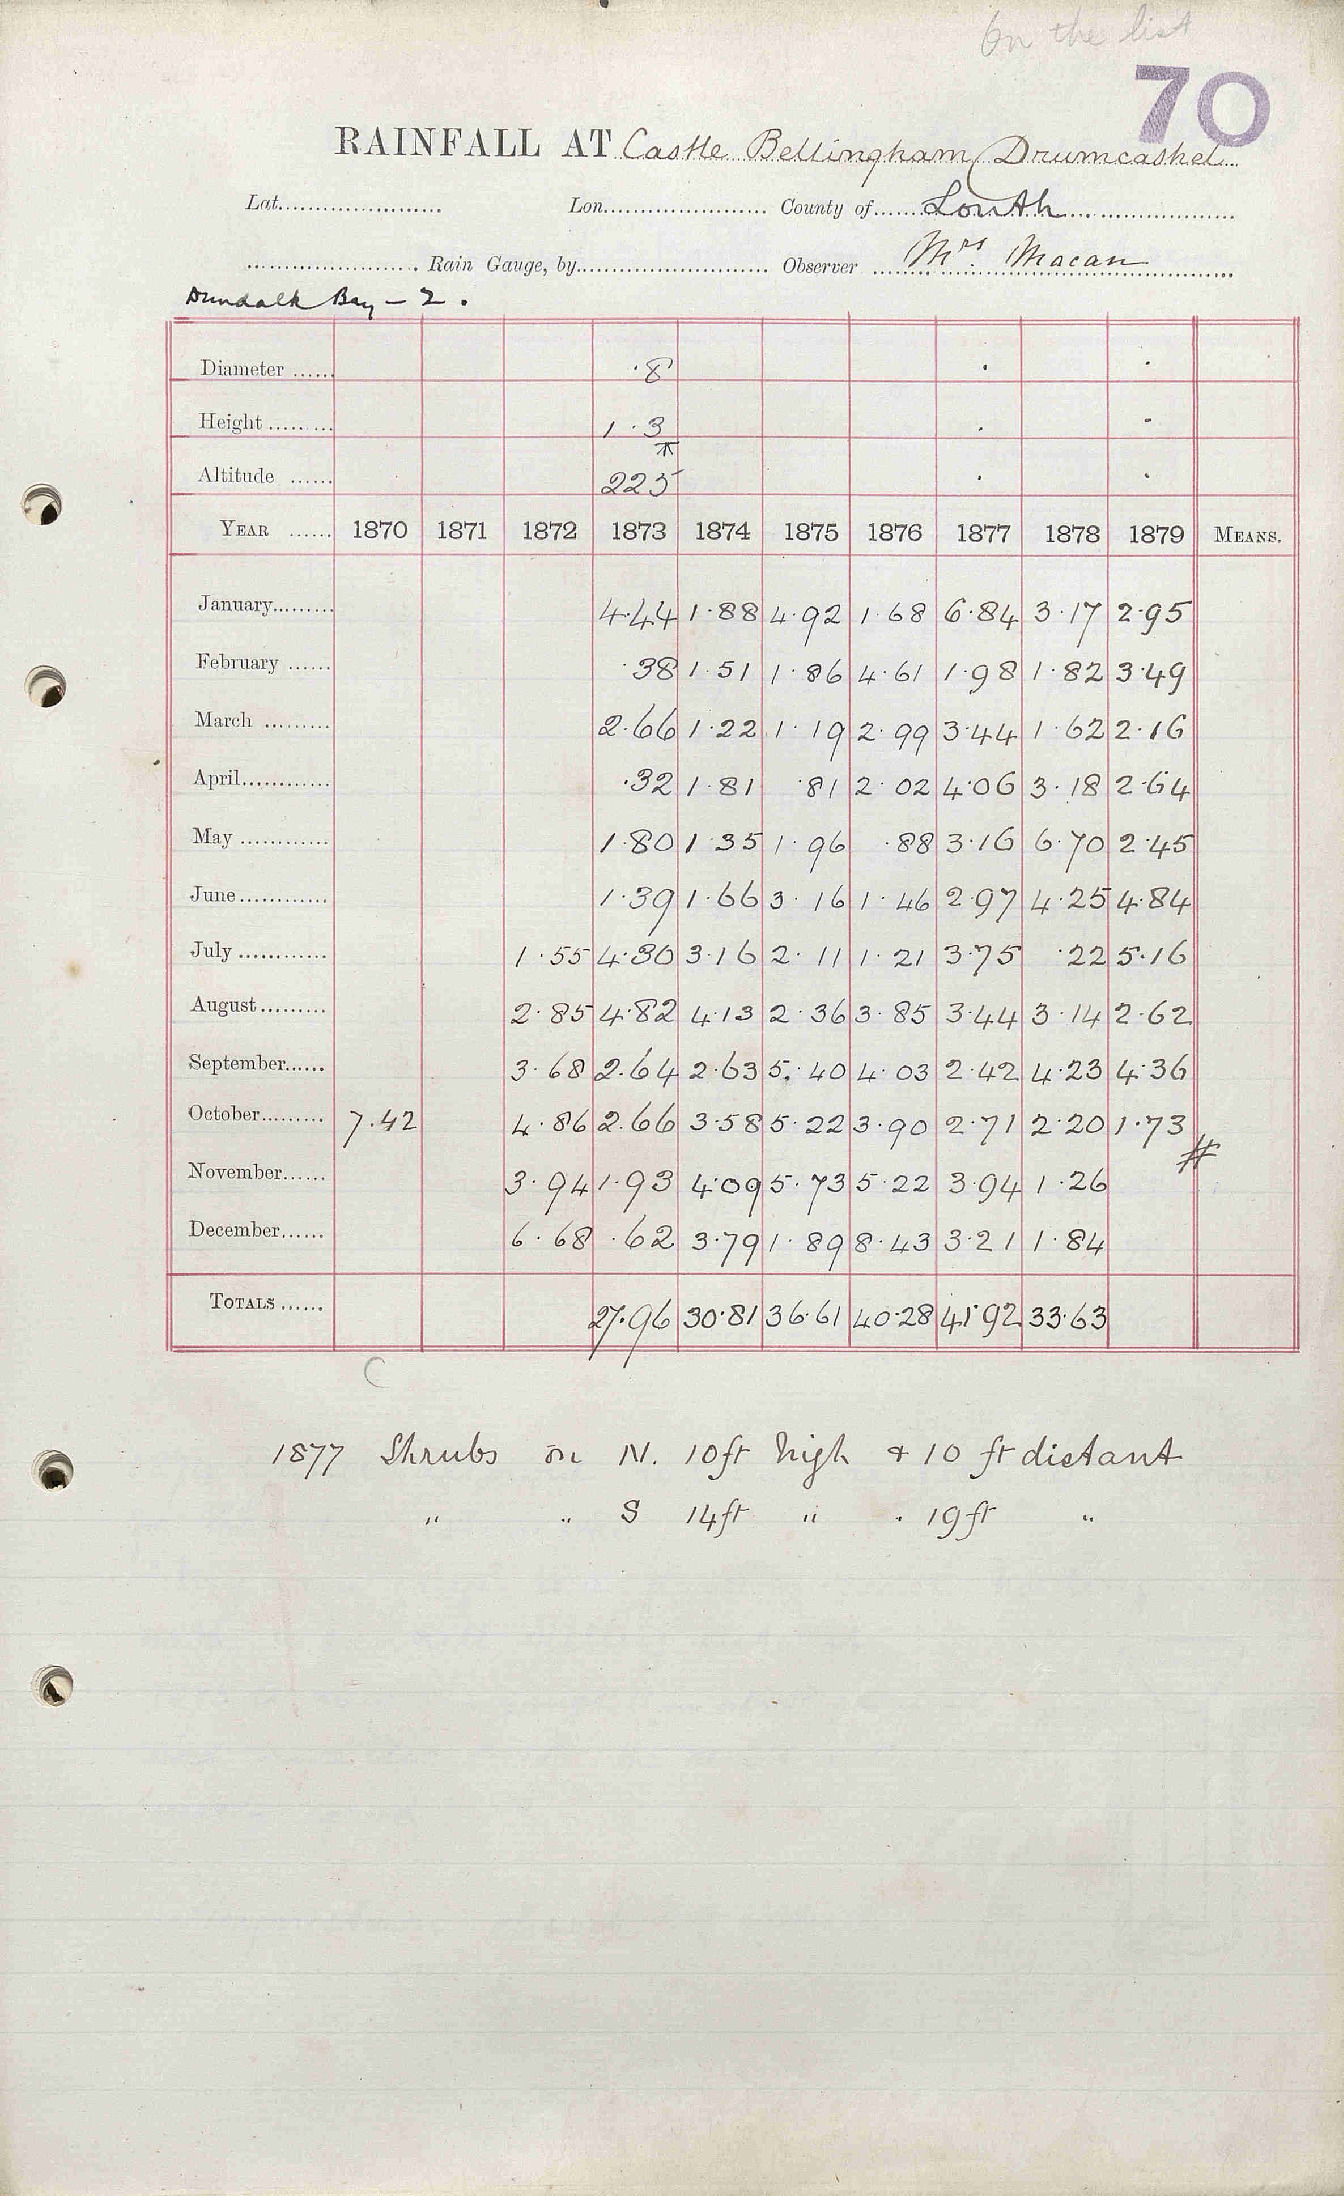 On the list
70
RAINFALL AT Castle Bellingham (Drumcashel
Lat. Lon. County of Louth
Rain Gauge, by Observer Mrs. Macan
Dundalk Bay - 2.
Diameter ·8
Height 1·3
Altitude 225
YEAR 1870 1871 1872 1873 1874 1875 1876 1877 1878 1879 MEANS.
January 4·44 1·88 4·92 1·68 6·84 3·17 2·95
February ·38 1·51 1·86 4·61 1·98 1·82 3·49
March 2·66 1·22 1·19 2·99 3·44 1·62 2·16
April ·32 1·81 ·81 2·02 4·06 3·18 2·64
May 1·80 1·35 1·96 ·88 3·16 6·70 2·45
June 1·39 1·66 3·16 1·46 2·97 4·25 4·84
July 1·55 4·30 3·16 2·11 1·21 3·75 ·22 5·16
August 2·85 4·82 4·13 2·36 3·85 3·44 3·14 2·62
September 3·68 2·64 2·63 5·40 4·03 2·42 4·23 4·36
October 7·42 4·86 2·66 3·58 5·22 3·90 2·71 2·20 1·73 #
November 3·94 1·93 4·09 5·73 5·22 3·94 1·26
December 6·68 ·62 3·79 1·89 8·43 3·21 1·84
TOTALS 27·96 30·81 36·61 40·28 41·92 33·63
C
1877 Shrubs on N. 10ft high & 10 ft distant
" " S 14ft " " 19ft "